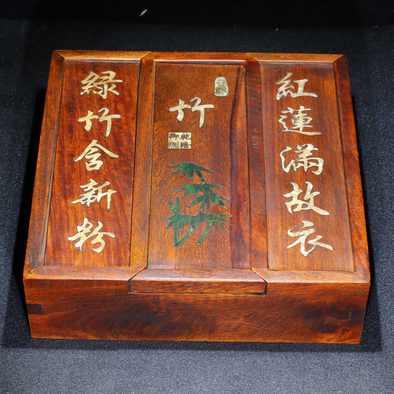 紅蓮滿故衣
竹
乾隆
緑竹含新粉